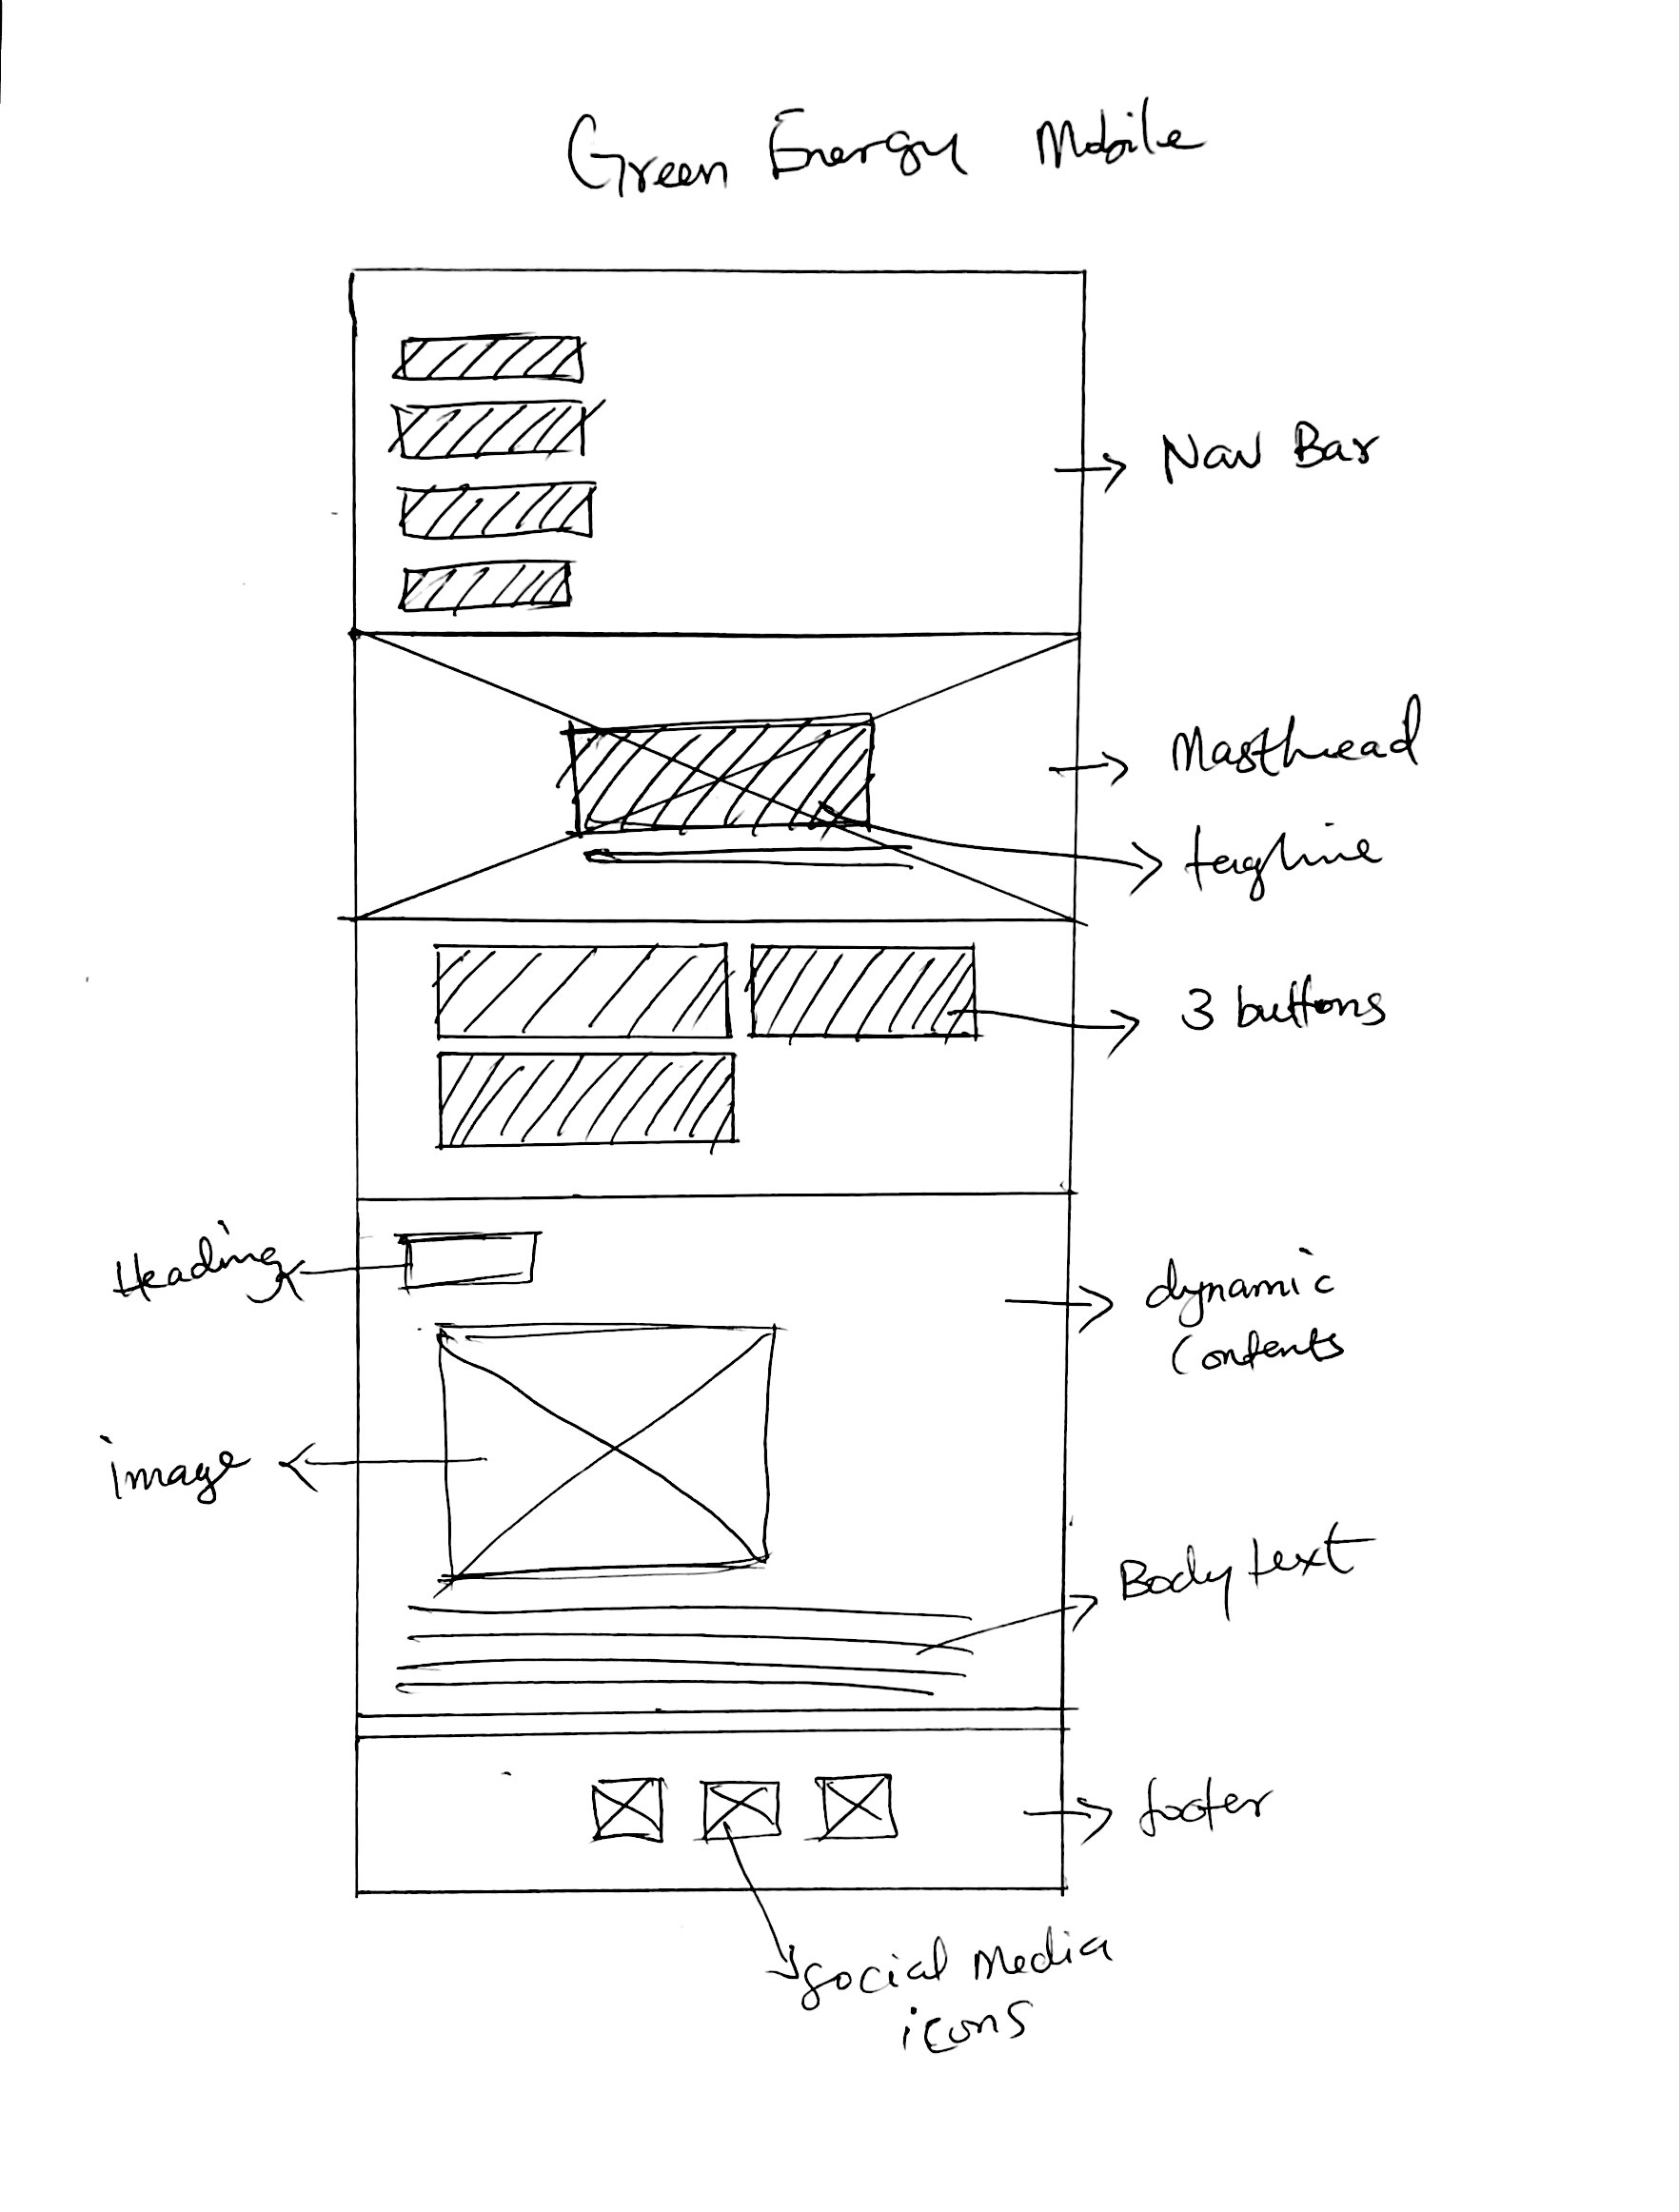 Green Energy Mobile
Nav Bar
Masthead
tagline
3 buttons
Heading
dynamic
contents
image
Body text
footer
social media
icons